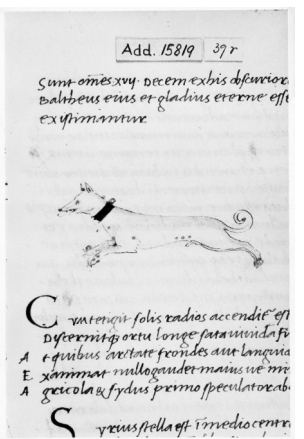 Add. 15819 39 r
Sunt omēs xvij. Decem ex his obscurior
Baltheus eius et gladius eterne esse
existimantur
Cum tengit solis radios accendit est
Discernitque ortu longe sata vivida fi
A t quibus artate frondes aut languid
E xanimat nullo gaudet maius ve mi
A gricola & sydus primo speculator ab
S yrius stella est i medio centr